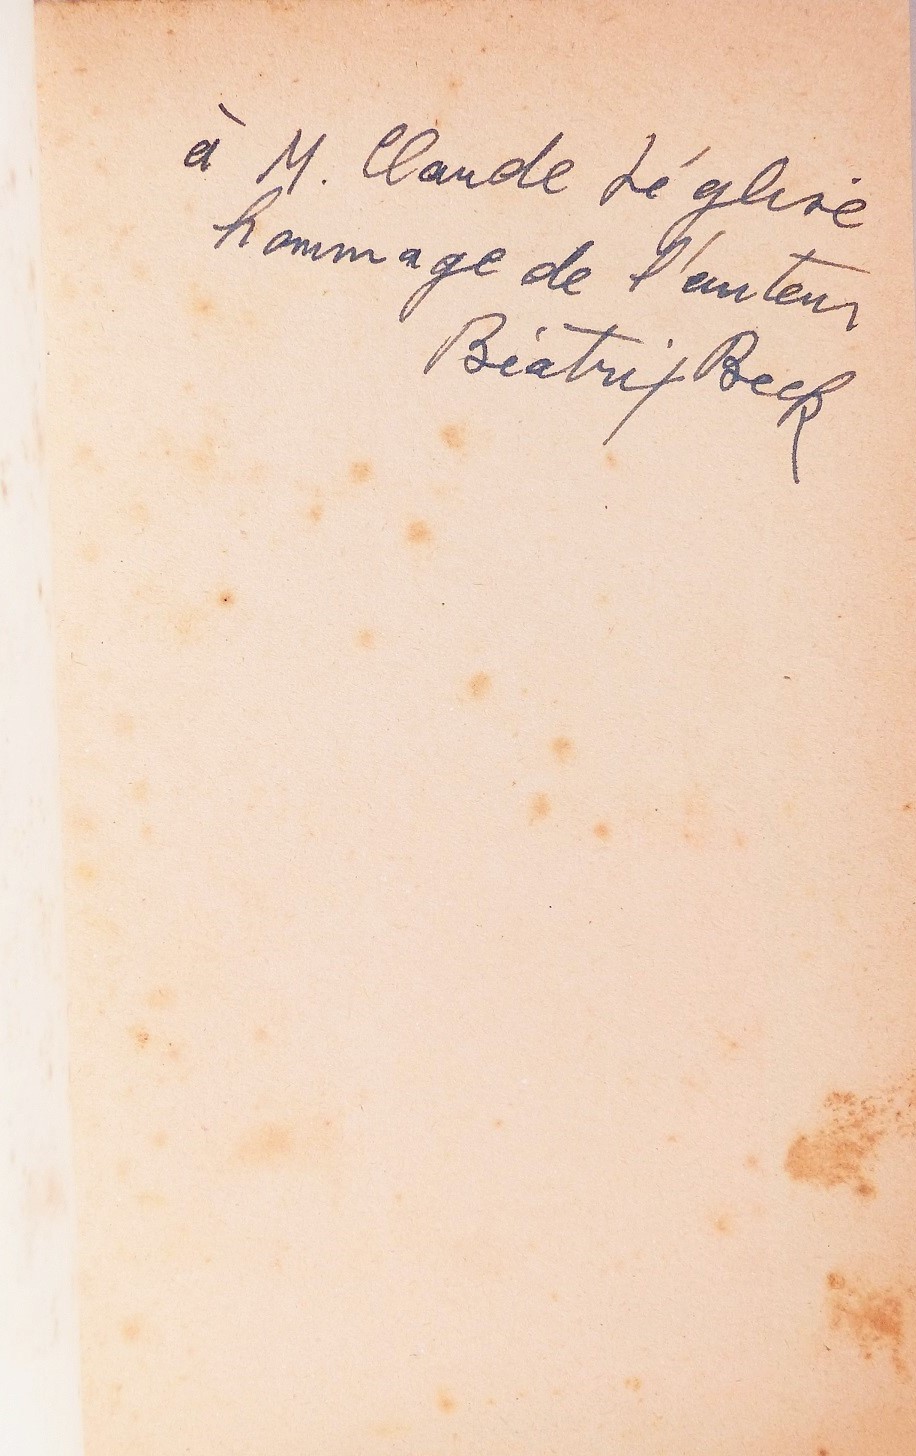 à M. Claude Léglise
hommage de l'auteur
Béatrix Beck